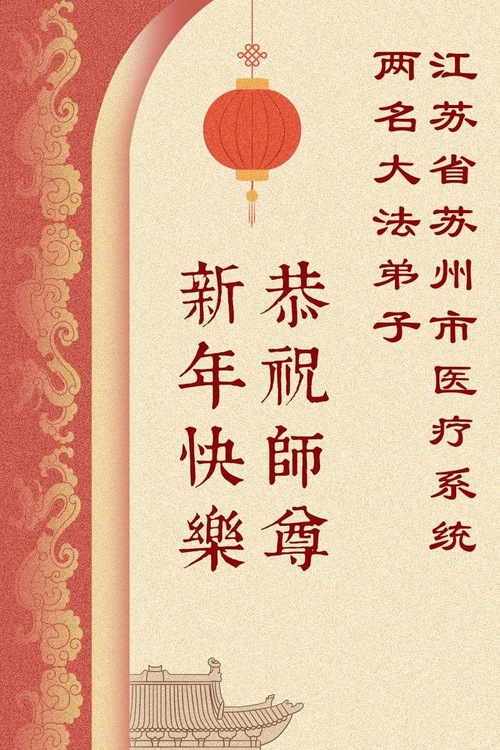 江苏省苏州市医疗系统
两名大法弟子
恭祝師尊
新年快樂